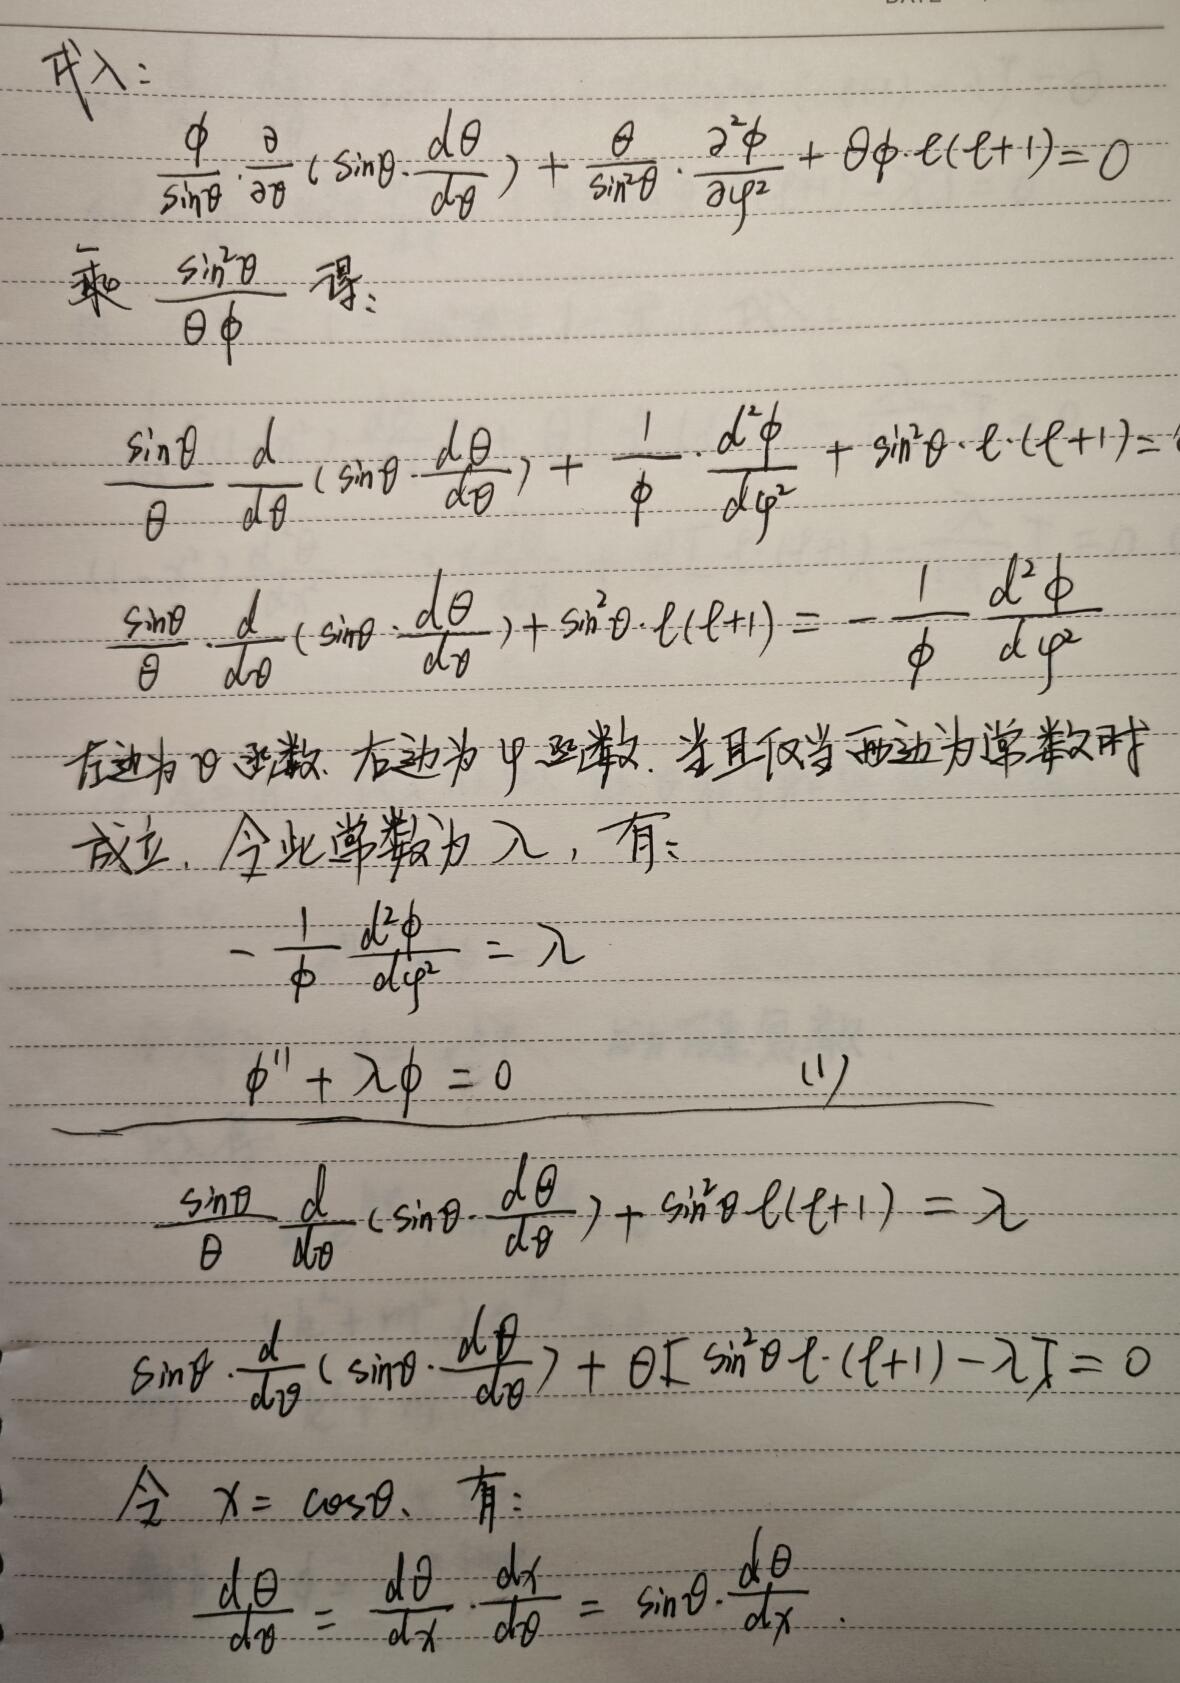 代入：
ϕ/sinθ · ∂/∂θ (sinθ · dΘ/dθ) + Θ/sin²θ · ∂²ϕ/∂φ² + Θϕ·ℓ(ℓ+1) = 0
乘 sin²θ/Θϕ 得：
sinθ/Θ d/dθ (sinθ · dΘ/dθ) + 1/ϕ · d²ϕ/dφ² + sin²θ·ℓ·(ℓ+1) =
sinθ/Θ · d/dθ (sinθ · dΘ/dθ) + sin²θ·ℓ(ℓ+1) = - 1/ϕ d²ϕ/dφ²
左边为θ函数.右边为φ函数.当且仅当两边为常数时
成立.令此常数为λ,有：
- 1/ϕ d²ϕ/dφ² = λ
ϕ'' + λϕ = 0 (1)
sinθ/Θ d/dθ (sinθ · dΘ/dθ) + sin²θ ℓ(ℓ+1) = λ
sinθ · d/dθ (sinθ · dΘ/dθ) + Θ[sin²θ ℓ·(ℓ+1) - λ] = 0
令 x = cosθ、有：
dΘ/dθ = dΘ/dx · dx/dθ = sinθ · dΘ/dx .